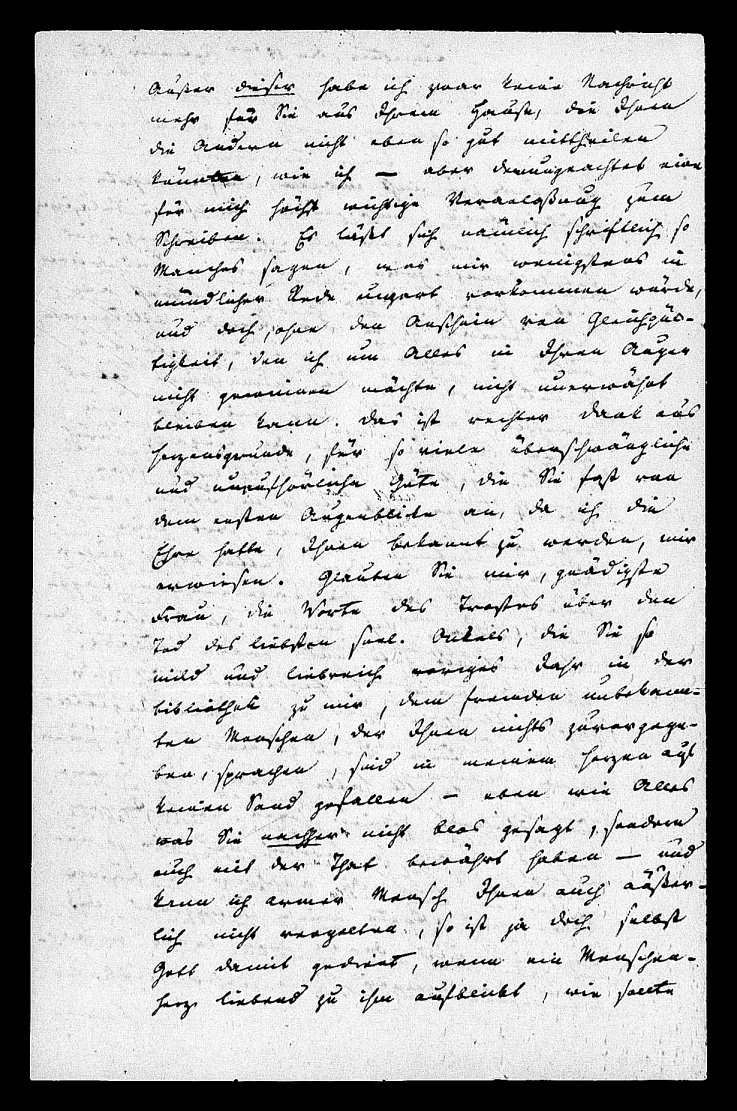 Außer dieser habe ich zwar keine Nachricht
mehr für Sie aus Ihrem Hause, die Ihnen
die Andern nicht eben so gut mittheilen
könnten, wie ich — aber demungeachtet eine
für mich höchst wichtige Veranlaßung zum
Schreiben. Es läßt sich nämlich schriftlich so
Manches sagen, was mir wenigstens in
mündlicher Rede unzart vorkommen würde,
und doch, ohne den Anschein von Gleichgül-
tigkeit, den ich um Alles in Ihren Augen
nicht gewinnen möchte, nicht unerwähnt
bleiben kann. Das ist rechter Dank aus
Herzensgrunde, für so viele überschwängliche
und unaufhörliche Güte, die Sie fast von
dem ersten Augenblicke an, da ich die
Ehre hatte, Ihnen bekannt zu werden, mir
erwiesen. Glauben Sie mir, gnädigste
Frau, die Worte des Trostes über den
Tod des liebsten seel. Onkels, die Sie so
mild und liebreich voriges Jahr in der
Bibliothek zu mir, dem fremden unbekann-
ten Menschen, der Ihnen nichts zuvorgege-
ben, sprachen, sind in meinem Herzen auf
keinen Sand gefallen — eben wie Alles
was Sie nachher nicht blos gesagt, sondern
auch mit der That bewährt haben — und
kann ich armer Mensch Ihnen auch äußer-
lich nicht vergelten, so ist ja doch selbst
Gott damit gedient, wenn ein Menschen-
herz liebend zu ihm aufblickt, wie sollte